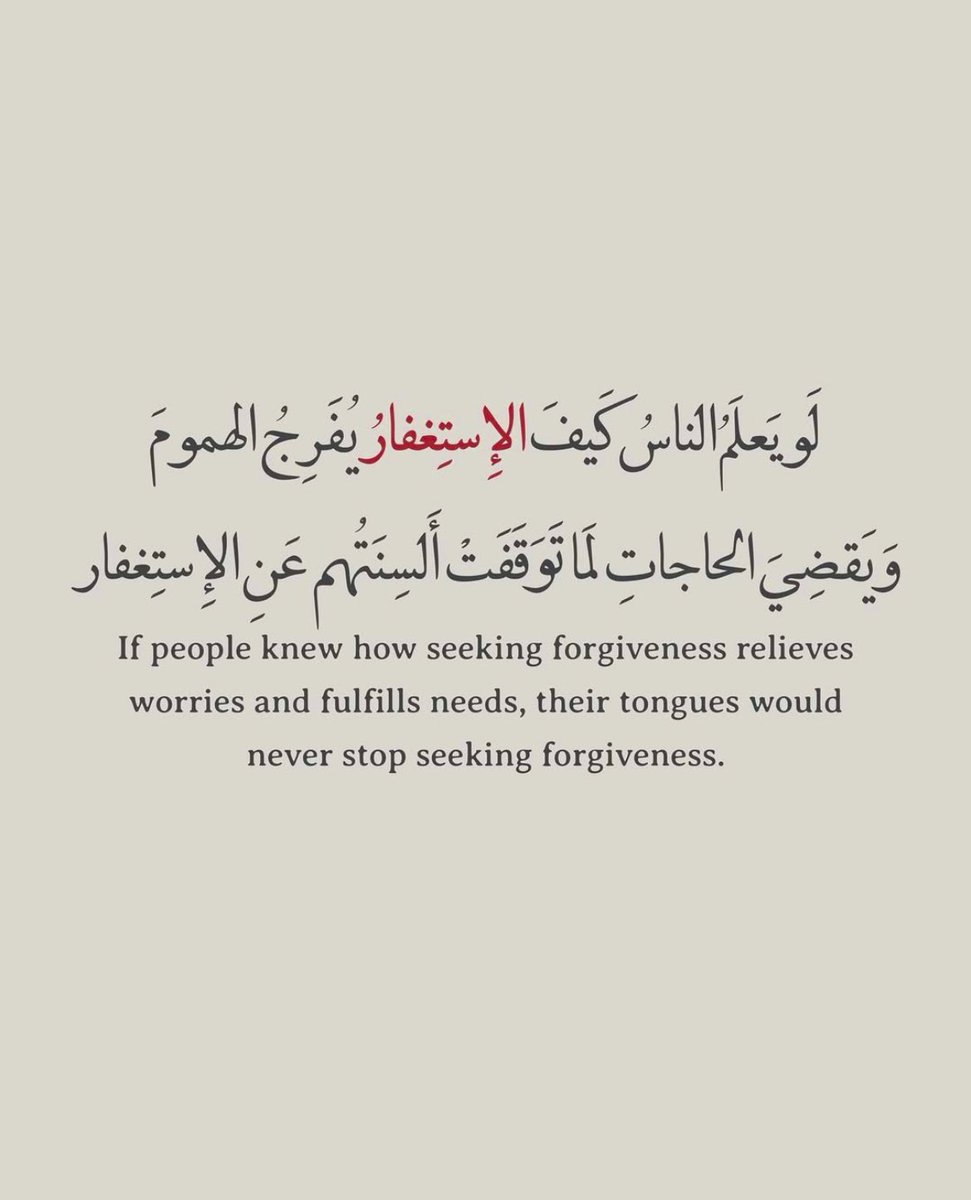 لَو يَعلَمُ الناسُ كَيفَ الإِستِغفارُ يُفَرِجُ الهمومَ
وَيَقضِيَ الحاجاتِ لَمَا تَوَقَفَتْ أَلسِنَتُهم عَنِ الإِستِغفار
If people knew how seeking forgiveness relieves
worries and fulfills needs, their tongues would
never stop seeking forgiveness.